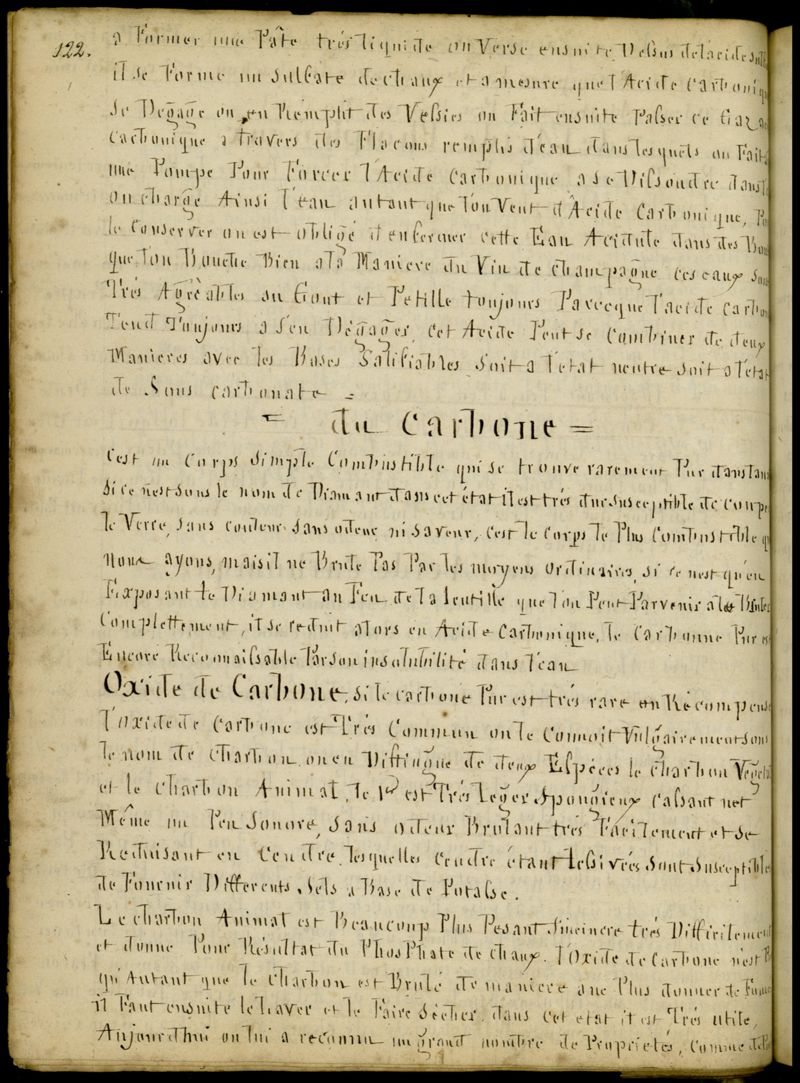 122.
a Former une Pâte trés liquide on Verse ensuite Dessus de lacide
il se Forme un Sulfate de chaux et a mesure que l'Acide Carboniq
se Dégage on en Remplit des Vessies on Fait ensuite Passer ce Gaz
Carbonique a travers des Flacons remplis d'eau dans lesquels on Fait
une Pompe Pour Forcer l'Acide Carbonique a se Dissoudre dans
on charge Ainsi l'eau autant que l'on Veut d'Acide Carbonique,
le Conserver on est obligé d'enfermer cette Eau Acidule dans des
que l'on Bouche Bien a la Maniere du Vin de champagne ces eaux sont
Très Agréables au Gout et Petille toujours Parceque l'acide Carbon
Tend Toujours a s'en Dégager, Cet Acide Peut se Combiner de deux
Manieres avec les Bases Salifiables Soit a l'etat neutre soit a l'etat
de Sous Carbonate =
= du Carbone =
C'est un Corps Simple Combustible qui se trouve rarement Pur dans
Si ce n'est sous le nom de Diamant dans cet état il est trés dur susceptible de coupe
le Verre, sans couleur sans odeur ni saveur, c'est le corps le Plus Combustible q
nous ayons, mais il ne Brule Pas Par les moyens ordinaires, si ce n'est qu'en
Exposant le Diamant au Feu de la lentille que l'on Peut Parvenir a le Bruler
Complettement, il se reduit alors en Acide Carbonique, le Carbonne Pur est
Encore Reconnaissable Par son insolubilité dans l'eau
Oxide de Carbone, si le carbone Pur est trés rare en Récompense
l'Oxide de Carbone est Trés Commun on le Connoit Vulgairement sous
le nom de charbon, on en Distingue de deux Espéces le charbon Vegetal
et le charbon Animal, le 1er est Trés Leger Spongieux Cassant net
Même un Peu Sonore, Sans odeur Brulant trés Facilement et se
Reduisant en Cendre, lesquelles cendre étant lessivées sont susceptibles
de Fournir Differents Sels a Base de Potasse.
Le charbon Animal est Beaucoup Plus Pesant S'incinere trés Difficilement
et donne Pour Résultat du Phosphate de chaux. l'Oxide de Carbone n'est
qu'Autant que le charbon est Brulé de maniere a ne Plus donner de Fumée
il Faut ensuite le laver et le Faire Sécher, dans cet etat il est Trés utile,
Aujourdhui on lui a reconnu un grand nombre de Proprietés, Comme